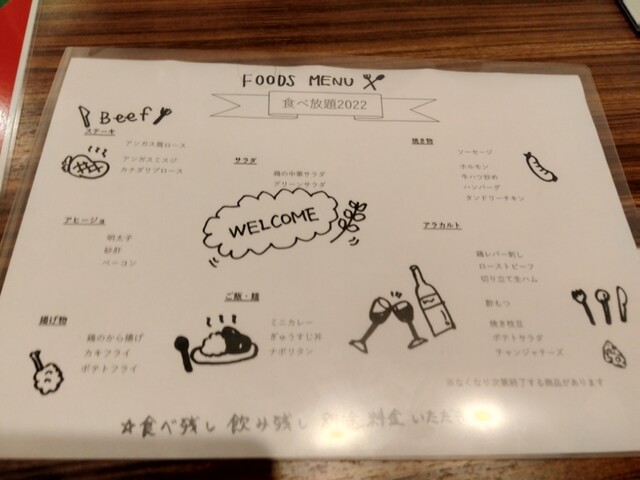 FOODS MENU
食べ放題2022
Beef
ステーキ
アンガス肩ロース
アンガスミスジ
カナダリブロース
サラダ
鶏の中華サラダ
グリーンサラダ
焼き物
ソーセージ
ホルモン
牛ハツ炒め
ハンバーグ
タンドリーチキン
アヒージョ
明太子
砂肝
ベーコン
WELCOME
アラカルト
鶏レバー刺し
ローストビーフ
切り立て生ハム
酢もつ
焼き枝豆
ポテトサラダ
チャンジャチーズ
揚げ物
鶏のから揚げ
カキフライ
ポテトフライ
ご飯・麺
ミニカレー
ぎゅうすじ丼
ナポリタン
※なくなり次第終了する商品があります
☆食べ残し 飲み残し 別途 料金 いただ